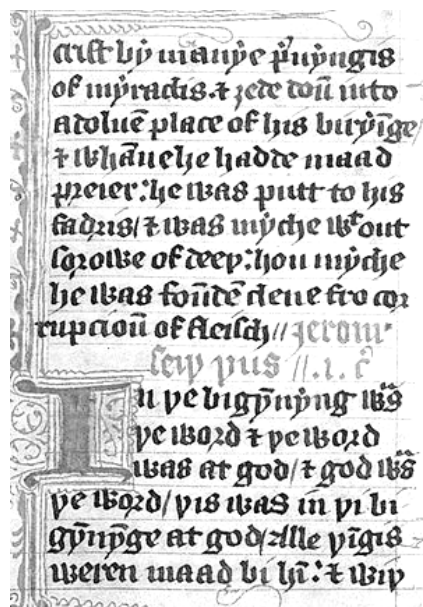 crist bẏ manẏe p̄uẏngis
of mẏraclis. ⁊ ȝede doū into
a doluē place of his burẏīge/
⁊ whāne he hadde maad
preier: he was putt to his
fadris/ ⁊ was mẏche wᵗout
sorowe of deeþ: hou mẏche
he was foūdē clene fro cor
rupcioū of fleisch// Jerom
seiþ þus //.i. c̄
In þe bigẏ̄nẏng wᵃs
þe word ⁊ þe word
was at god/ ⁊ god wᵃs
þe word/ þis was in þi bi
gẏ̄nẏ̄ge at god/ Alle þīgis
weren maad bi hī: ⁊ wiþ